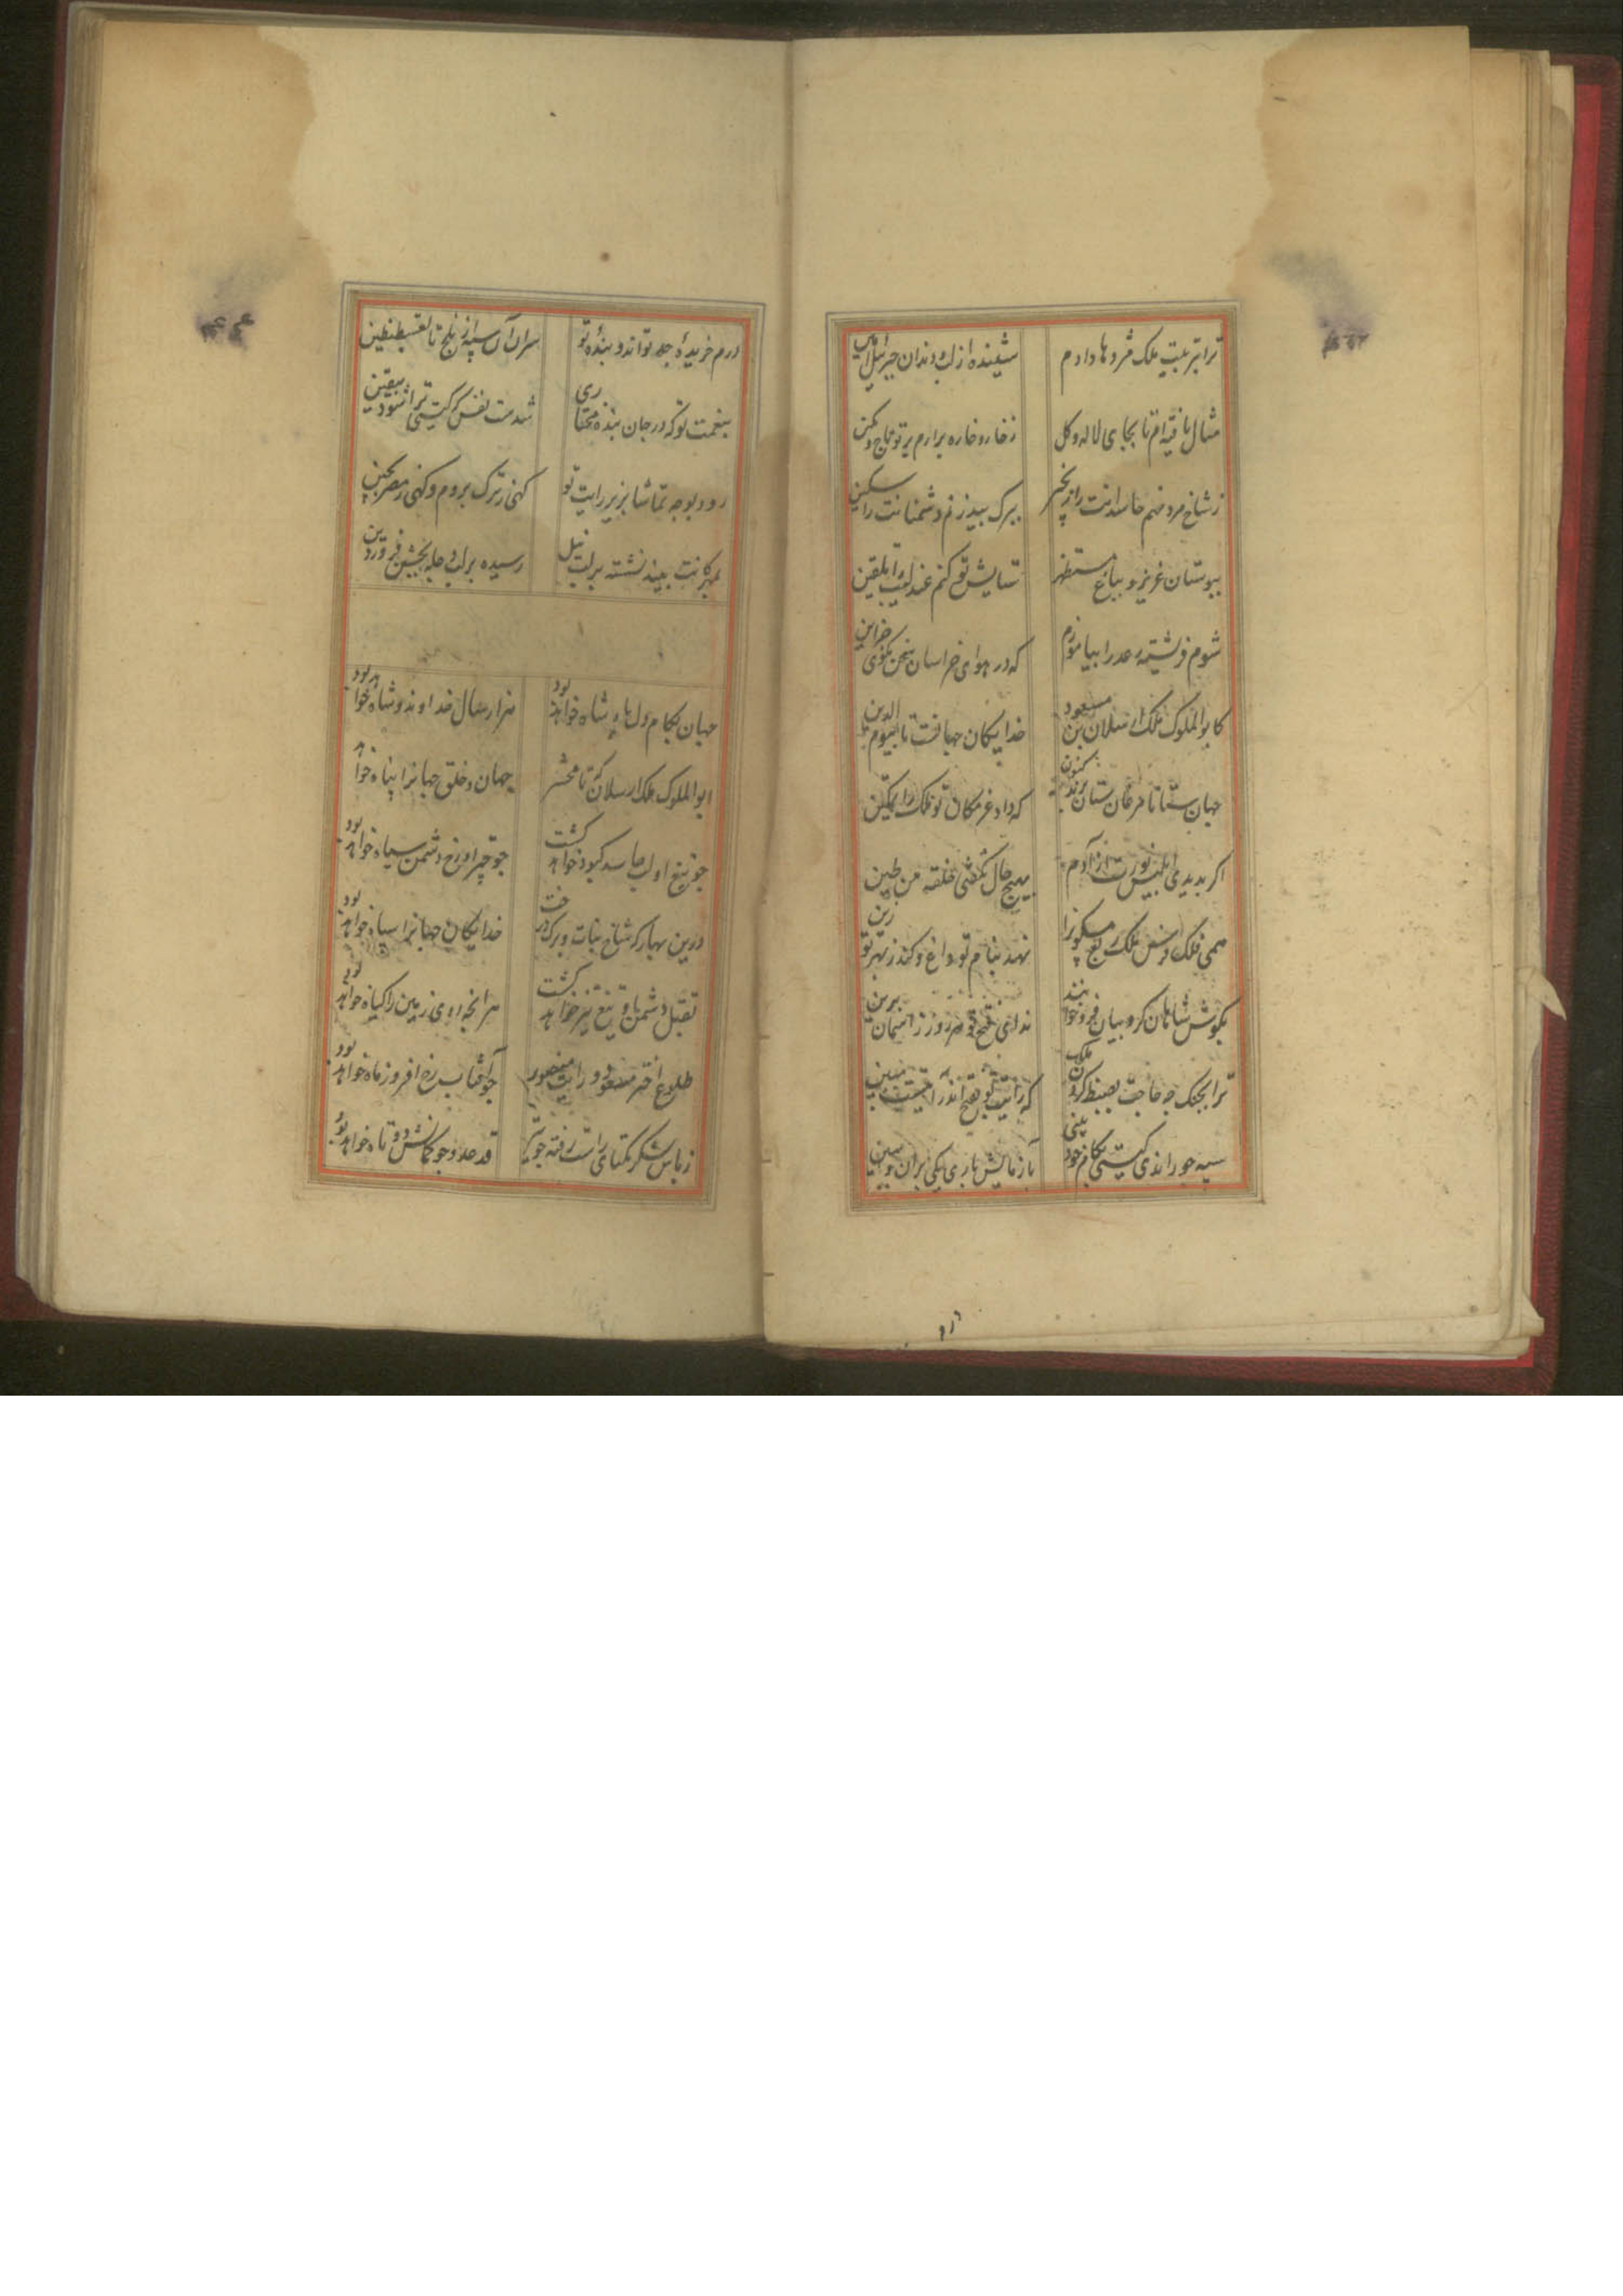 ترا بتربیت ملک مژدها دادم
شنیده از لب و دندان جبرئیل امین
مثال یافته ام تا بجای لاله و کل
زخار و خاره برارم بر تو تاج و نکین
زشاخ مرد نهم حاسدانت را زنجیر
ببرک بید زنم دشمنانت را سکین
ببوستان عزیز و بباغ مستظهر
ستایش تو کنم عندلیب را تلقین
شوم فرشته رعد را بیاموزم
که در هوای خراسان سخن نکوی جزاین
کابوالملوک ملک ارسلان بن مسعود
خدایکان جهانست تا بیوم الدین
جهان ستانا فرمان ستان کنون
که داد عز مکان تو ملک را تمکین
اکر بدیدی ابلیس نورت از آدم
بهیچ حال نکفتی خلقته من طین
همی فلک فرس ملک
نهد بنام تو داغ و کند زبهر تو زین
بکوش شاهان کروبیان فرو خوانند
ندای فتح تو هر روز ز آسمان برین
ترا بجنک چه حاجت بضبط کردن ملک
که رایت تو بفتح اندر آیتیست مبین
سپه چو رانذی کیتی بکام خود بینی
بآزمایش باری یکی بران و ببین
درم خریدۀ جود تو اند و بندۀ تو
سران آن سپه از بلخ تا لقسطنطین
بنعمت توکه در جان بنده مختاری
شدست نفس که کیتی ترا شود بیقین
رود بوجه تماشا بزیر رایت تو
کهی زترک بروم و کهی زمصر بچین
بمهرکانت ببیند نشسته بر لب نیل
رسیده بر لب دجله بجشن فروردین
جهان بکام دل پادشاه خواهد بود
هزار سال خداوند و شاه خواهد بود
ابوالملوک ملک ارسلان که تا محشر
جهان و خلق جهانرا پناه خواهد
چو تیغ او لب حاسد کبود خواهد کشت
چو چتر او رخ دشمن سیاه خواهد بود
درین بهار که شاخ نبات و برک درخت
خدایکان جهانرا سپاه خواهد بود
بقتل دشمن او تیغ تیز خواهد کشت
هرانچه روی زمین را کیاه خواهد بود
طلوع اختر مسعود و رایت منصور
چو آفتاب رخ افروز ماه خواهد بود
زباس لشکر یکتای راست رفته چو تیر
قد عدو چو کمانش دو تاه خواهد بود
درم